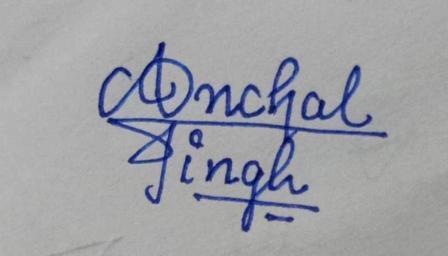 Anchal
Singh